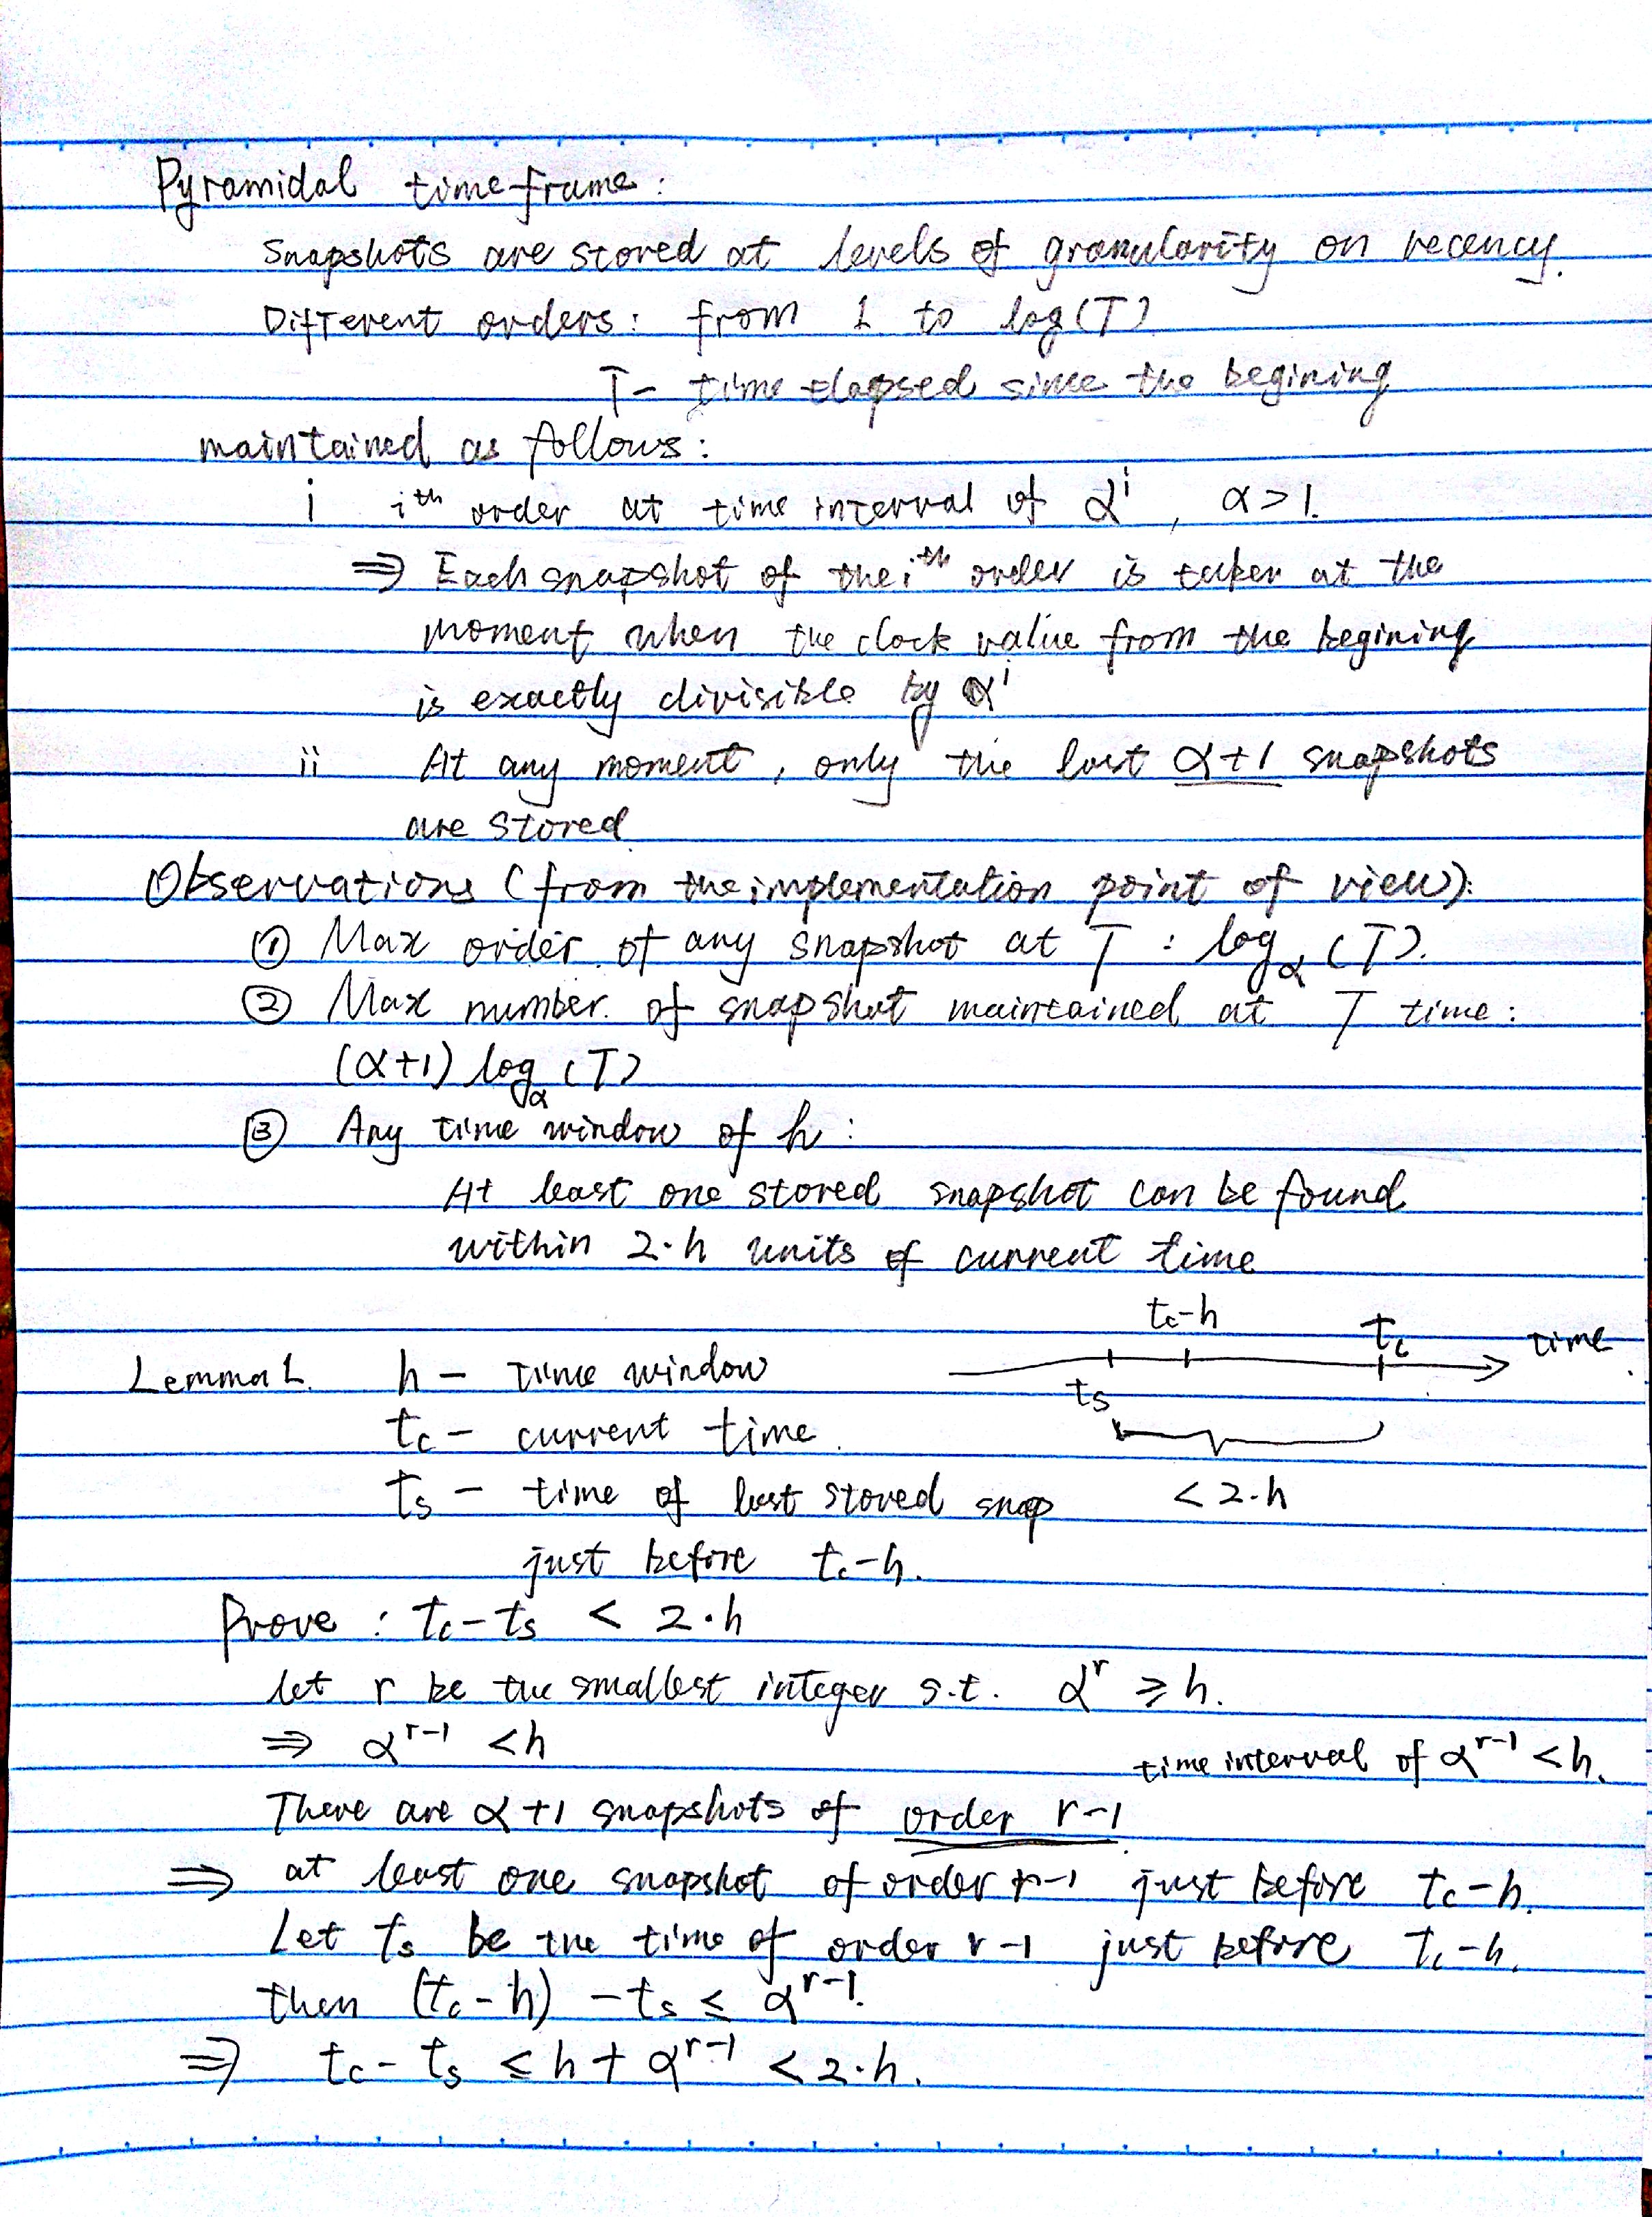 Pyramidal time frame:
Snapshots are stored at levels of granularity on recency.
Different orders: from 1 to log(T)
T - time elapsed since the begining
maintained as follows:
i iᵗʰ order at time interval of αⁱ, α > 1.
⇒ Each snapshot of the iᵗʰ order is taken at the
moment when the clock value from the begining
is exactly divisible by αⁱ
ii At any moment, only the last α+1 snapshots
are stored
Observations (from the implementation point of view):
① Max order of any snapshot at T : log_α (T).
② Max number of snapshot maintained at T time:
(α+1) log_α (T)
③ Any time window of h:
At least one stored snapshot can be found
within 2·h units of current time
t_c-h
t_c time
Lemma 1. h - time window
t_s
t_c - current time.
t_s - time of last stored snap < 2·h
just before t_c-h.
Prove : t_c - t_s < 2·h
let r be the smallest integer s.t. αʳ ≥ h.
⇒ αʳ⁻¹ < h
time interval of αʳ⁻¹ < h.
There are α+1 snapshots of order r-1
⇒ at least one snapshot of order r-1 just before t_c-h.
Let t_s be the time of order r-1 just before t_c-h.
then (t_c-h) - t_s ≤ αʳ⁻¹.
⇒ t_c - t_s ≤ h + αʳ⁻¹ < 2·h.